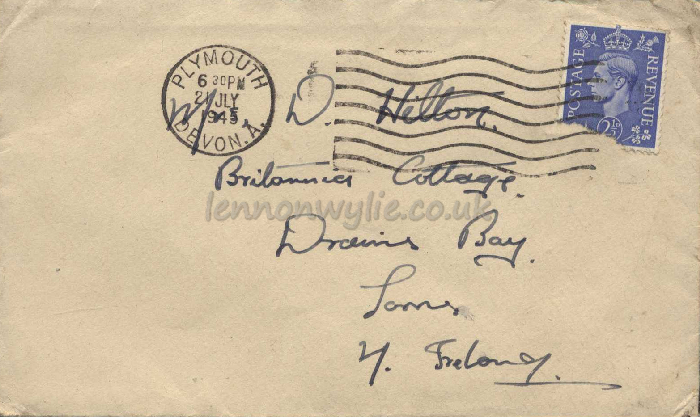 PLYMOUTH
6 30PM
2 JULY
1945
DEVON. A.
POSTAGE REVENUE
2½D
D. Hilton.
Britannia Cottage.
Drains Bay.
Larne
N. Ireland.
lennonwylie.co.uk